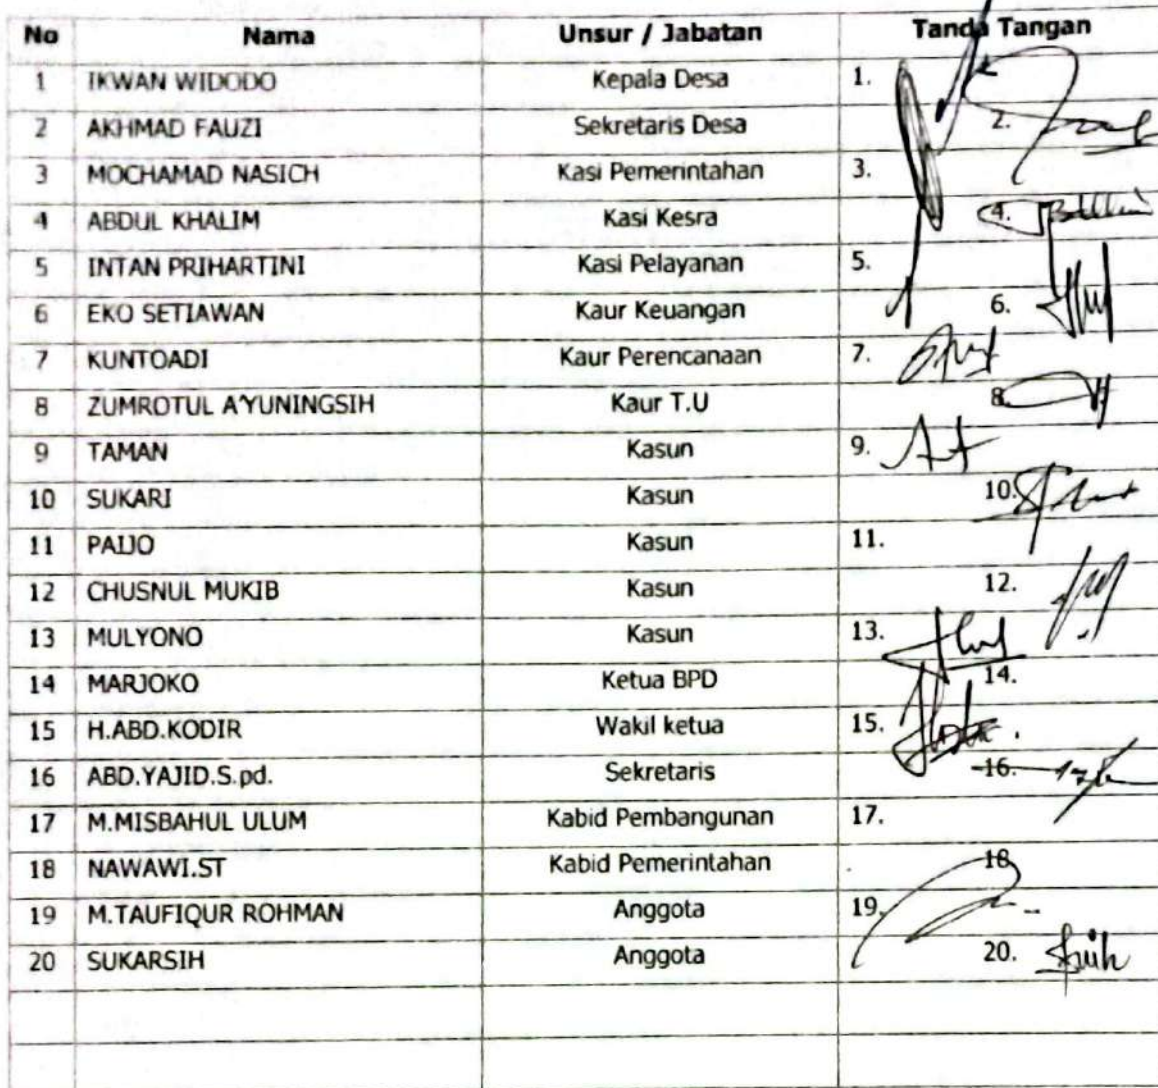 No Nama Unsur / Jabatan Tanda Tangan
1 IKWAN WIDODO Kepala Desa 1.
2 AKHMAD FAUZI Sekretaris Desa 2.
3 MOCHAMAD NASICH Kasi Pemerintahan 3.
4 ABDUL KHALIM Kasi Kesra 4.
5 INTAN PRIHARTINI Kasi Pelayanan 5.
6 EKO SETIAWAN Kaur Keuangan 6.
7 KUNTOADI Kaur Perencanaan 7.
8 ZUMROTUL A'YUNINGSIH Kaur T.U 8.
9 TAMAN Kasun 9.
10 SUKARI Kasun 10.
11 PAIJO Kasun 11.
12 CHUSNUL MUKIB Kasun 12.
13 MULYONO Kasun 13.
14 MARJOKO Ketua BPD 14.
15 H.ABD.KODIR Wakil ketua 15.
16 ABD.YAJID.S.pd. Sekretaris 16.
17 M.MISBAHUL ULUM Kabid Pembangunan 17.
18 NAWAWI.ST Kabid Pemerintahan 18
19 M.TAUFIQUR ROHMAN Anggota 19.
20 SUKARSIH Anggota 20.